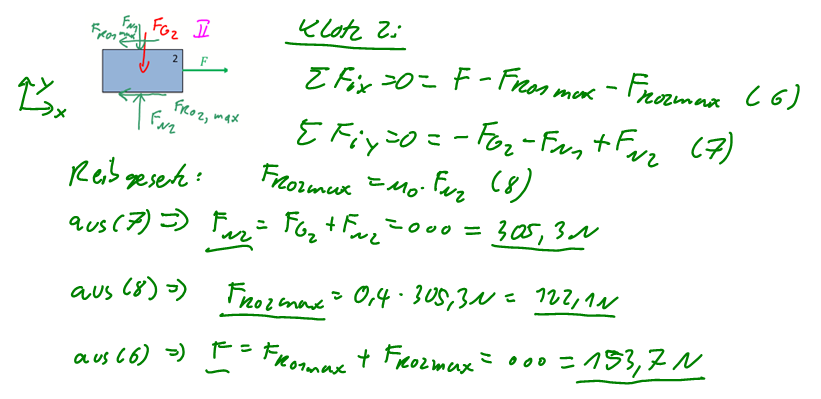 F_N1 F_G2 II
F_R01max
2 F
y
x
F_R02,max
F_N2
Klotz 2:
ΣF_ix = 0 = F - F_R01max - F_R02max (6)
ΣF_iy = 0 = -F_G2 - F_N1 + F_N2 (7)
Reibgesetz: F_R02max = μ0 · F_N2 (8)
aus (7) => F_N2 = F_G2 + F_N2 = ... = 305,3N
aus (8) => F_R02max = 0,4 · 305,3N = 122,1N
aus (6) => F = F_R01max + F_R02max = ... = 153,7N